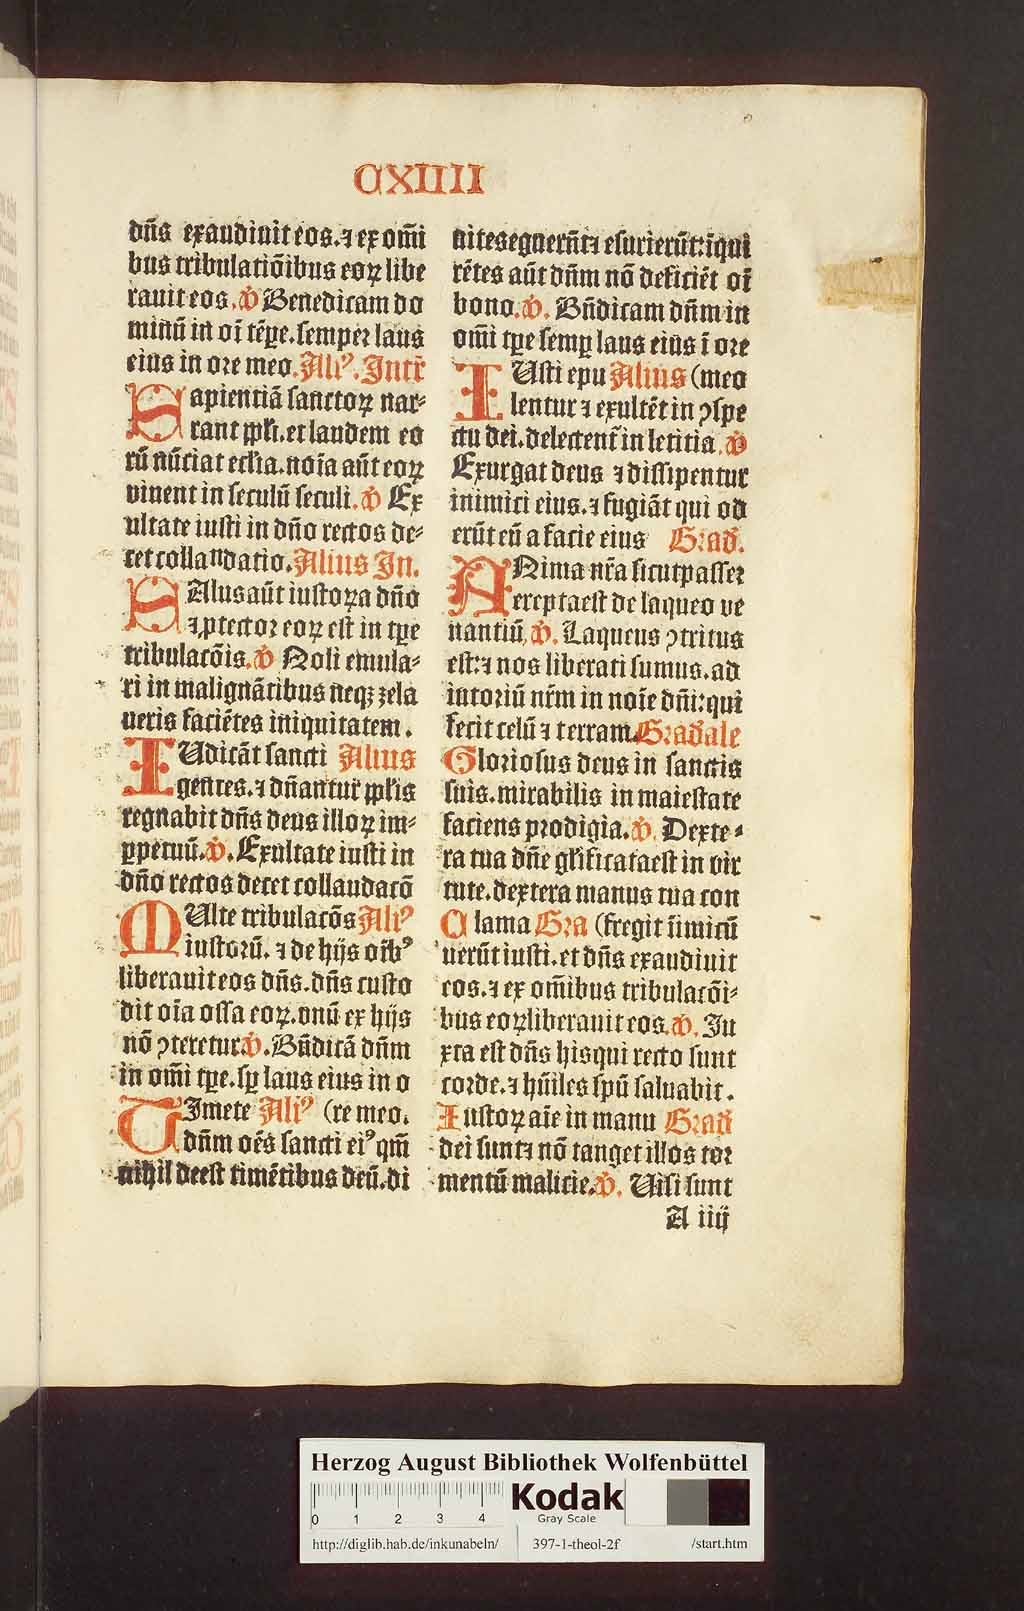 CXIIII
dn̄s exaudiuit eos. ⁊ ex om̄i
bus tribulatiōibus eoꝝ libe
rauit eos. ℣ Benedicam do
minū in oī tēꝑe. semper laus
eius in ore meo. Aliꝰ. Intr̄
Sapientiā sanctoꝝ nar⸗
rant ppl̄i. et laudem eo
rū nūciat eccl̄ia. noīa aūt eoꝝ
viuent in seculū seculi. ℣ Ex
ultate iusti in dn̄o rectos de⸗
cet collaudatio. Alius In.
SAlus aūt iustoꝝ a dn̄o
⁊ ꝓtector eoꝝ est in tꝑe
tribulacōis. ℣ Noli emula⸗
ri in malignātibus neqꝫ zela
ueris faciētes iniquitatem.
IUdicāt sancti Alius
gentes. ⁊ dn̄antur ppl̄is
regnabit dn̄s deus illoꝝ im⸗
ꝑpetuū. ℣. Exultate iusti in
dn̄o rectos decet collaudacō
MUlte tribulacōs Aliꝰ
iustorū. ⁊ de hijs oīb꒰
liberauit eos dn̄s. dn̄s custo
dit oīa ossa eoꝝ. vnū ex hijs
nō ꝯteretur. ℣. Bn̄dicā dn̄m
in om̄i tꝑe. sꝑ laus eius in o
TImete Aliꝰ (re meo.
dn̄m oēs sancti eiꝰ qm̄
nihil deest timētibus deū. di
uites eguerūt ⁊ esurierūt: īqui
rētes aūt dn̄m nō deficiēt oī
bono. ℣. Bn̄dicam dn̄m in
om̄i tꝑe semꝑ laus eius ī ore
IUsti epu Alius (meo
lentur ⁊ exultēt in ꝯspe
ctu dei. delectent̄ in leticia. ℣
Exurgat deus ⁊ dissipentur
inimici eius. ⁊ fugiāt qui od
erūt eū a facie eius Grad̄.
ANima nr̄a sicut passer
erepta est de laqueo ve
nantiū. ℣. Laqueus ꝯtritus
est: ⁊ nos liberati sumus. ad
iutoriū nr̄m in noīe dn̄i: qui
fecit celū ⁊ terram. Gradale
Gloriosus deus in sanctis
suis. mirabilis in maiestate
faciens prodigia. ℣. Dexte⸗
ra tua dn̄e gl̄ificata est in vir
tute. dextera manus tua con
Clama Gra (fregit īimicū
uerūt iusti. et dn̄s exaudiuit
eos. ⁊ ex om̄ibus tribulacōi⸗
bus eoꝝ liberauit eos. ℣. Iu
xta est dn̄s his qui recto sunt
corde. ⁊ hūiles spū saluabit.
Iustoꝝ aīe in manu Grad̄
dei sunt ⁊ nō tanget illos tor
mentū malicie. ℣. Uisi sunt
A iiij
Herzog August Bibliothek Wolfenbüttel
0 1 2 3 4
Kodak
Gray Scale
http://diglib.hab.de/inkunabeln/ 397-1-theol-2f /start.htm